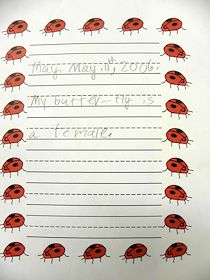 May. May. 11th, 2006.
My butter-fly is
a female.